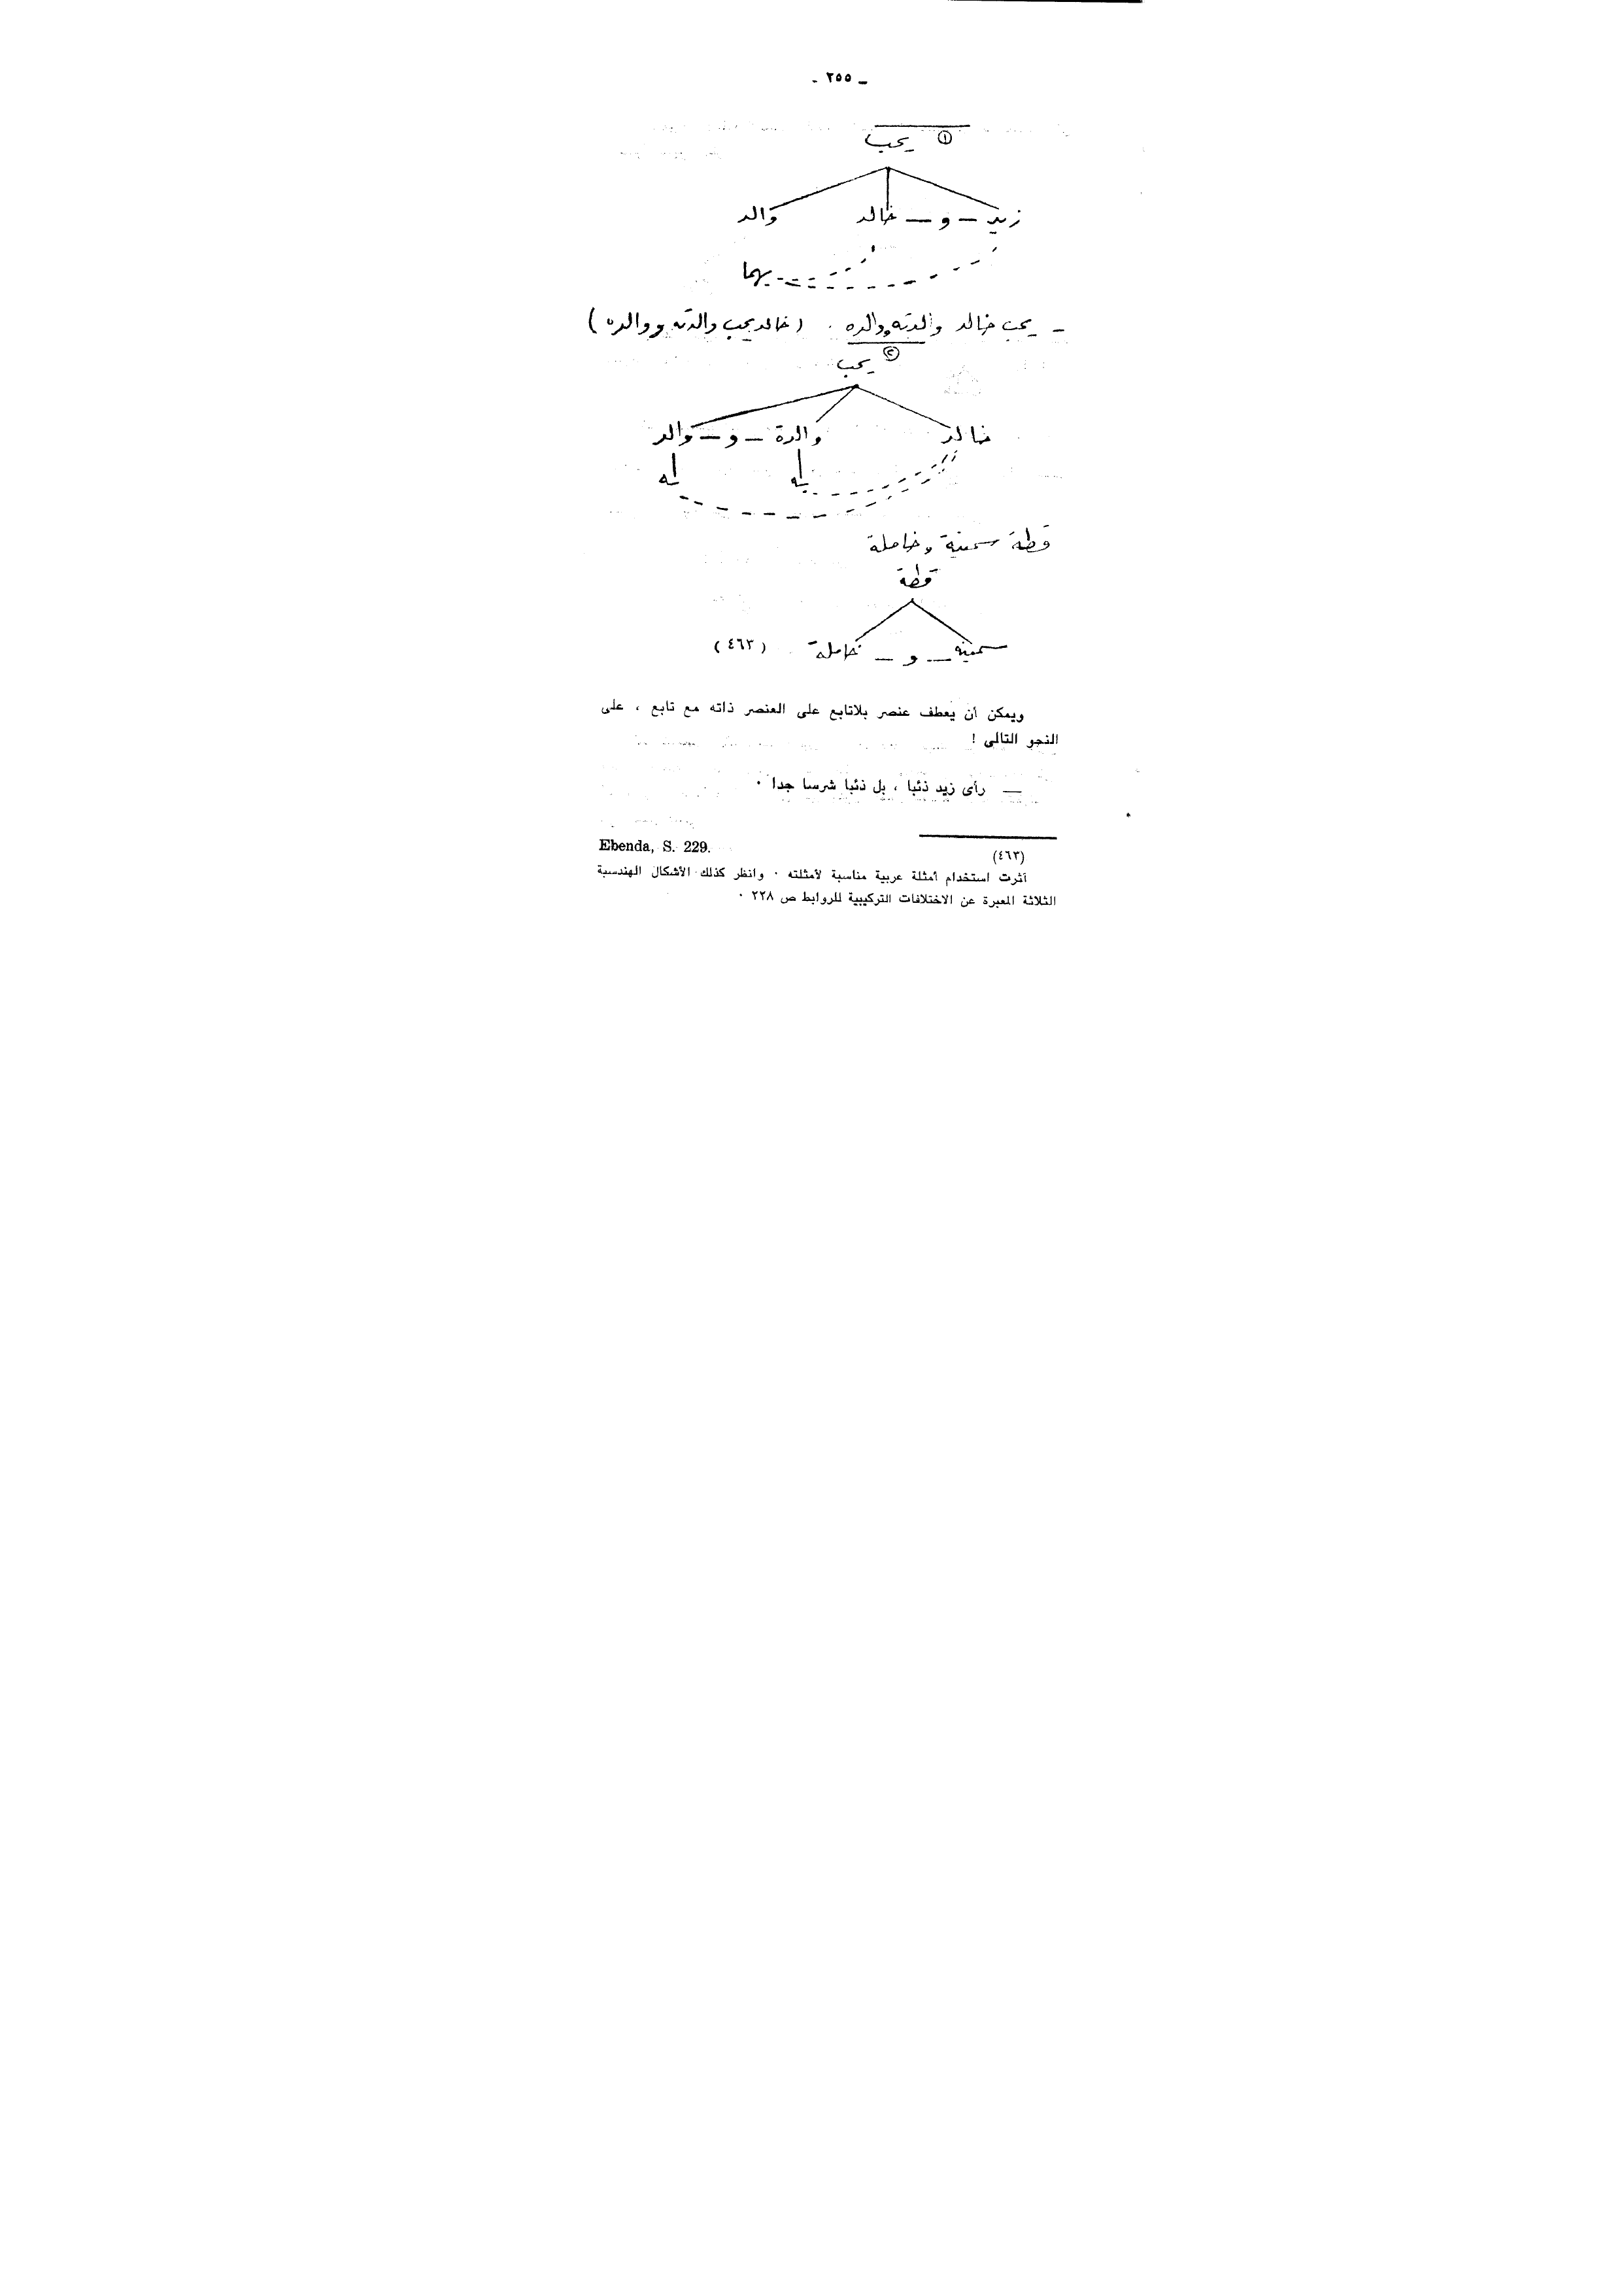 ـ ٢٥٥ ـ
① يحب
زيد ـ و ـ خالد والد
يهما
ـ يحب خالد والدته ووالده . (خالد يحب والدته ووالده)
② يحب
خالد والدة ـ و ـ والد
ـه ـه
قطة سمينة وخاملة
قطة
سمينة ـ و ـ خاملة (٤٦٣)
ويمكن أن يعطف عنصر بلاتابع على العنصر ذاته مع تابع ، على
النحو التالى !
ـــ رأى زيد ذئبا ، بل ذئبا شرسا جدا ٠
(٤٦٣) Ebenda, S. 229.
آثرت استخدام أمثلة عربية مناسبة لأمثلته ٠ وانظر كذلك الأشكال الهندسية
الثلاثة المعبرة عن الاختلافات التركيبية للروابط ص ٢٢٨ ٠